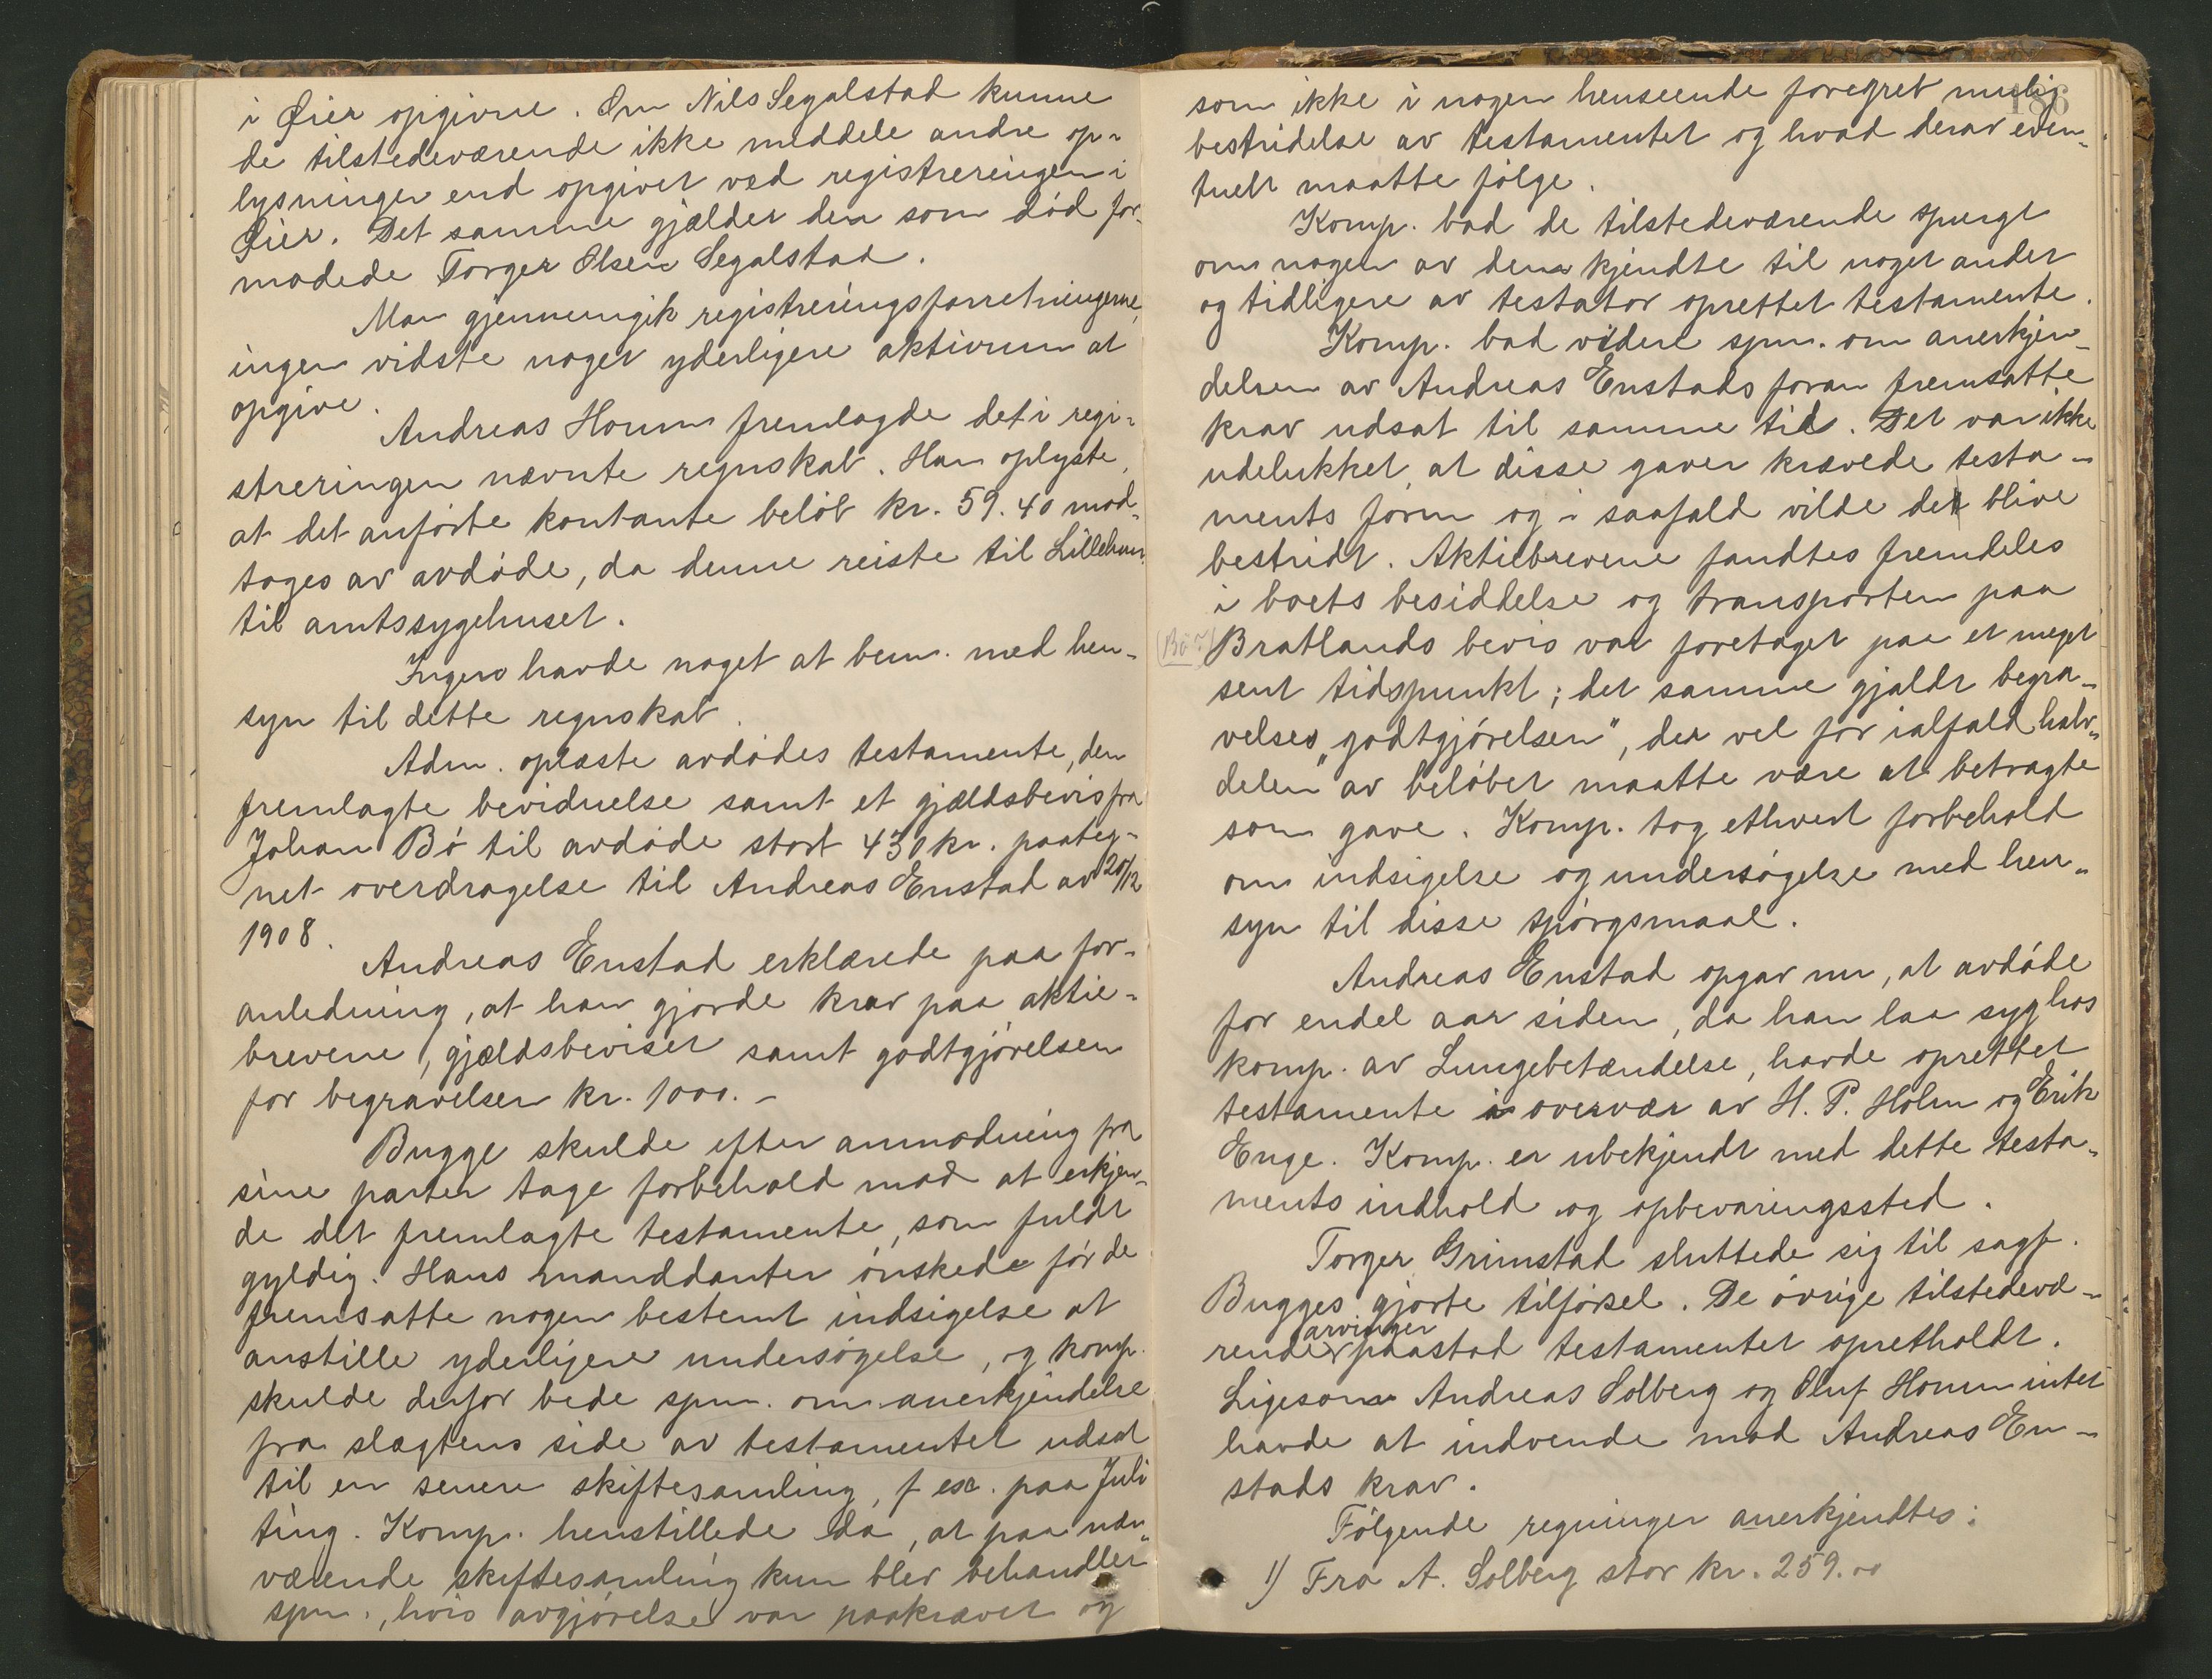 i Øier opgivne. Om Nils Segalstad kunne
de tilstedeværende ikke meddele andre op-
lysninger end opgivet ved registreringen i
Øier. Det samme gjælder den som død for-
modede Torger Olsen Segalstad.
Man gjennemgik registreringsforretningerne,
ingen vidste noget yderligere aktivum at
opgive.
Andreas Homm fremlagde det i regi-
streringen nævnte regnskab. Han oplyste,
at det anførte kontante beløb kr. 59.40 mod-
toges av avdøde, da denne reiste til Lilleham.
til amtssygehuset.
Ingen havde noget at bem. med hen-
syn til dette regnskab.
Adm. oplæste avdødes testamente, den
fremlagte bevidnelse samt et gjældsbevis fra
Johan Bø til avdøde stort 430 kr. paateg-
net overdragelse til Andreas Enstad av 20/12
1908.
Andreas Enstad erklærede paa for-
anledning, at han gjorde krav paa aktie-
brevene, gjældsbeviset samt godtgjørelsen
for begravelsen kr. 1000.-
Bugge skulde efter anmodning fra
sine parter tage forbehold mod at erkjen-
de det fremlagte testamente, som fuldt
gyldig. Hans manddanter ønskede før de
fremsatte nogen bestemt indsigelse at
anstille yderligere undersøgelse, og komp.
skulde derfor bede spm. om anerkjendelse
fra slægtens side av testamentet udsat
til en senere skiftesamling, f ex. paa Juli
ting. Komp. henstillede da, at paa nær-
værende skiftesamling kun blev behandlet
spm., hvis avgjørelse var paakrævet og
186
som ikke i nogen henseende foregreb mulig
bestridelse av testamentet og hvad derav even-
tuelt maatte følge.
Komp. bad de tilstedeværende spurgt
om nogen av dem kjendte til noget andet
og tidligere av testator oprettet testamente.
Komp. bad videre spm. om anerkjen-
delsen av Andreas Enstads foran fremsatte
krav udsat til samme tid. Det var ikke
udelukket, at disse gaver krævede testa-
ments form og i saafald vilde det blive
bestridt. Aktiebrevene fandtes fremdeles
i boets besiddelse og transporten paa
(Bø?) Bratlands bevis var foretaget paa et meget
sent tidspunkt; det samme gjaldt begra-
velses "godtgjørelsen", der vel for ialfald halv-
delen av beløbet maatte være at betragte
som gave. Komp. tog ethvert forbehold
om indsigelse og undersøgelse med hen-
syn til disse spørgsmaal.
Andreas Enstad opgav nu, at avdøde
for endel aar siden, da han laa syg hos
komp. av Lungebetændelse, havde oprettet
testamente i overvær av H. P. Holm og Erik
Enge. Komp. er ubekjendt med dette testa-
ments indhold og opbevaringssted.
Torger Grimstad sluttede sig til sagf.
Bugges gjorte tilførsel. De øvrige tilstedevæ-
rende arvinger paastod testamentet opretholdt.
Ligesom Andreas Solberg og Oluf Homm intet
havde at indvende mod Andreas En-
stads krav.
Følgende regninger anerkjendtes:
1) Fra A. Solberg stor kr. 259.00